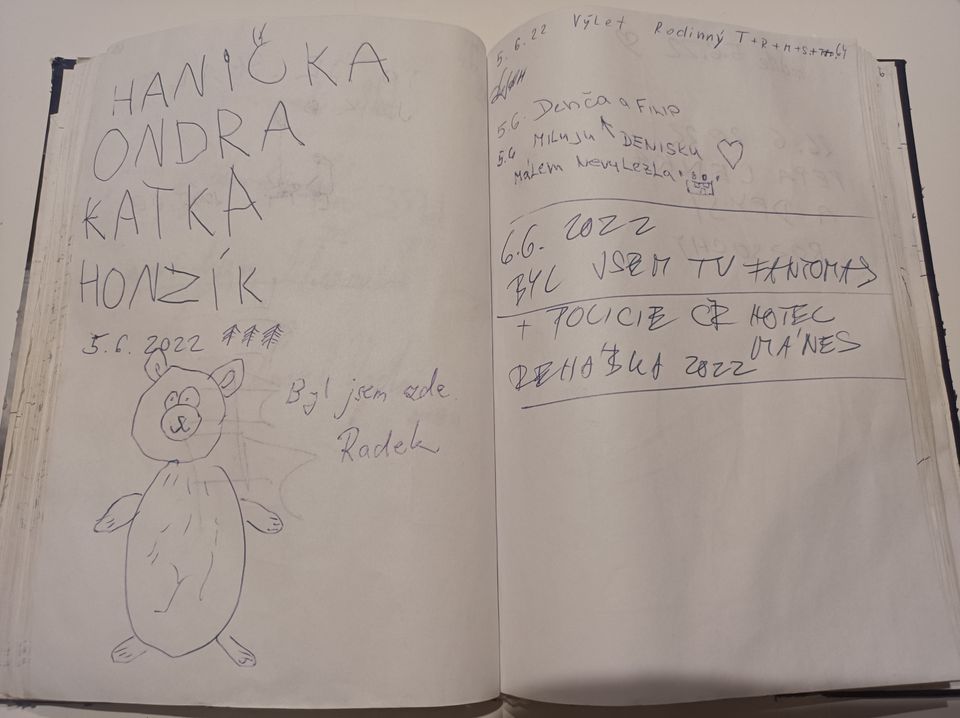 HANIČKA
ONDRA
KATKA
HONZÍK
5.6.2022
Byl jsem zde
Radek
5.6.22 Výlet Rodinný T+R+M+S+
5.6. Denča a Filip
5.6 MILUJU DENISKU
MÁLEM NEVYLEZLA
6.6. 2022
BYL JSEM TU FANTOMAS
+ POLICIE ČR HOTEL
MÁNES
2022